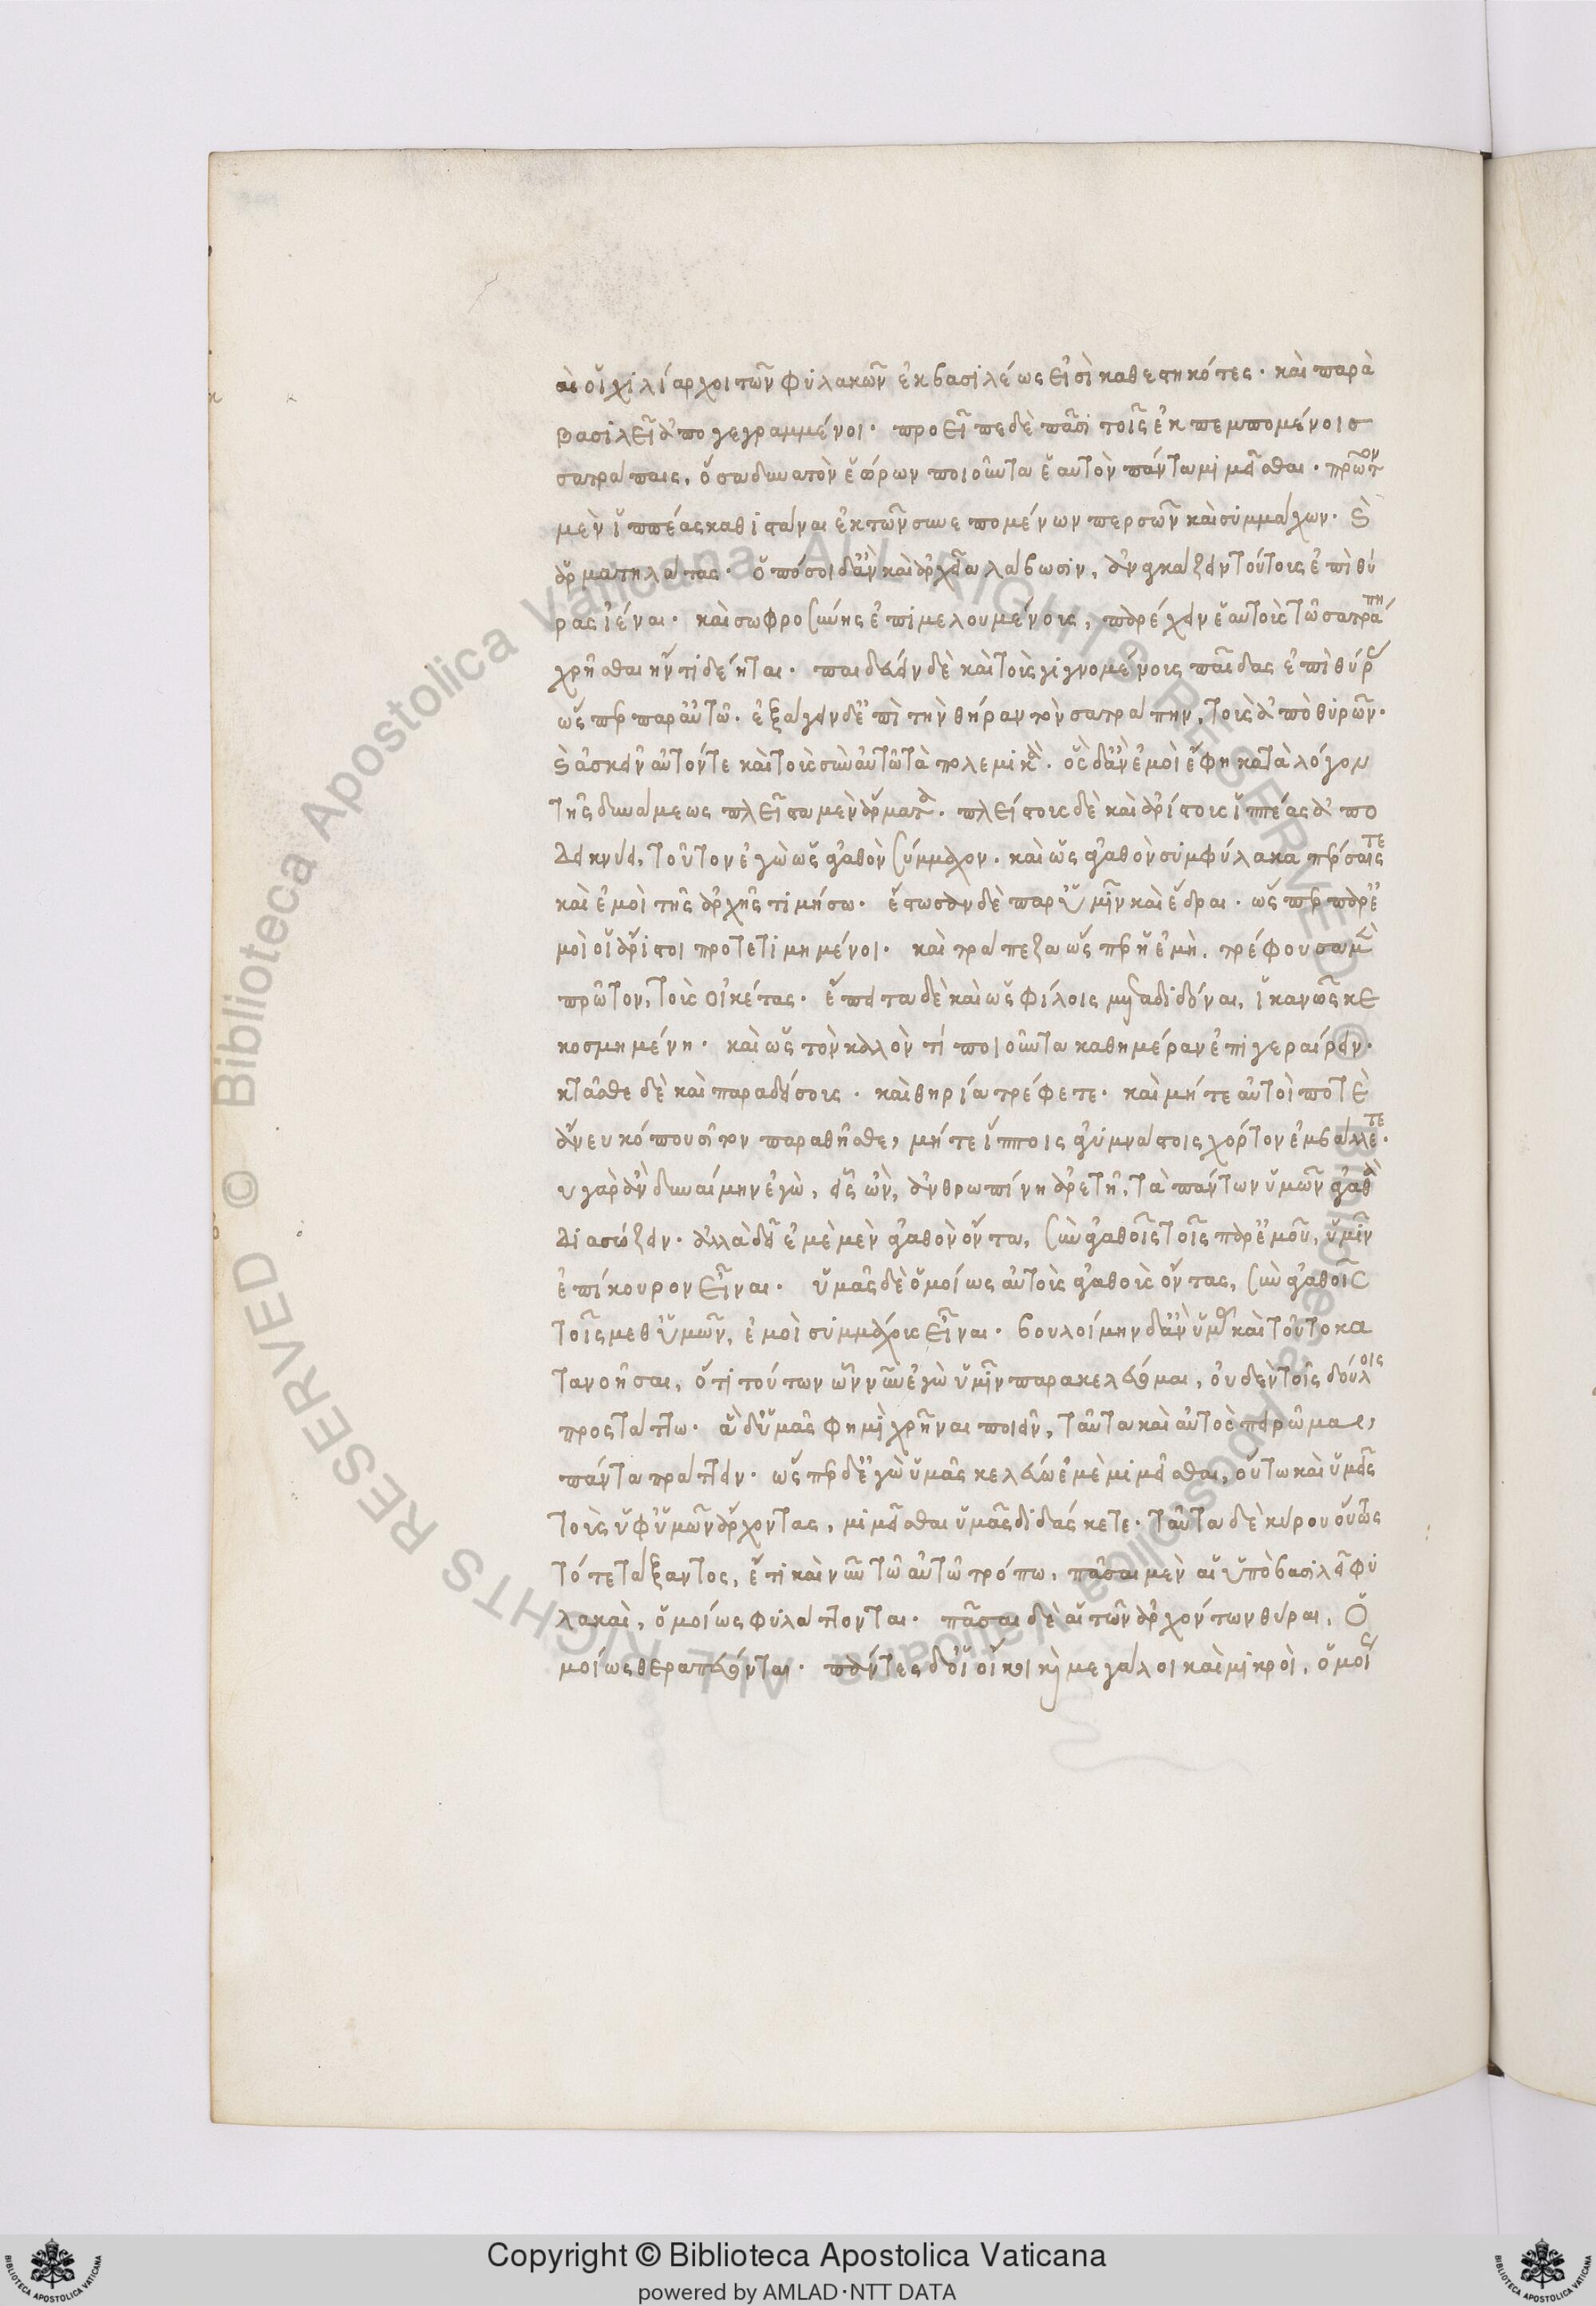 αι οἱ χιλίαρχοι τῶν φυλακῶν ἐκ βασιλέως εἰσὶ καθεστηκότες· καὶ παρὰ
βασιλεῖ ἀπογεγραμμένοι· προεῖπε δὲ πᾶσι τοῖς ἐκπεμπομένοις
σατράπαις, ὅσα δυνατὸν ἑώρων ποιοῦντα ἑαυτὸν πάντα μιμεῖσθαι· πρῶτον
μὲν ἱππέας καθιστάναι ἐκ τῶν συνεπομένων περσῶν καὶ συμμάχων· καὶ
ἁρματηλάτας· ὁπόσοι δ' ἂν καὶ ἀρχεῖα λάβωσιν, ἀναγκάζειν τούτους ἐπὶ θύ
ρας ἰέναι· καὶ σωφροσύνης ἐπιμελουμένους, παρέχειν ἑαυτοὺς τῶ σατράπη
χρῆσθαι ἤν τι δέηται· παιδεύειν δὲ καὶ τοὺς γιγνομένους παῖδας ἐπὶ θύρας
ὥσπερ παρ' αὐτῶ· ἐξάγειν δ' ἐπὶ τὴν θήραν τὸν σατράπην, τοὺς ἀπὸ θυρῶν·
καὶ ἀσκεῖν αὑτόν τε καὶ τοὺς σὺν αὑτῶ τὰ πολεμικά· ὃς δ' ἂν ἐμοὶ ἔφη κατὰ λόγον
τῆς δυνάμεως πλεῖστα μὲν ἅρματα· πλείστους δὲ καὶ ἀρίστους ἱππέας ἀπο
δεικνύει, τοῦτον ἐγὼ ὡς ἀγαθὸν σύμμαχον· καὶ ὡς ἀγαθὸν συμφύλακα πέρσαις τε
καὶ ἐμοὶ τῆς ἀρχῆς τιμήσω· ἔστωσαν δὲ παρ' ὑμῖν καὶ ἕδραι· ὥσπερ παρ' ἐ
μοὶ οἱ ἄριστοι προτετιμημένοι· καὶ τράπεζα ὥσπερ ἡ ἐμὴ, τρέφουσα μὲν
πρῶτον, τοὺς οἰκέτας· ἔπειτα δὲ καὶ ὡς φίλοις μεταδιδόναι, ἱκανῶς κε
κοσμημένη· καὶ ὡς τὸν καλόν τι ποιοῦντα καθημέραν ἐπιγεραίρειν·
κτᾶσθε δὲ καὶ παραδείσους· καὶ θηρία τρέφετε· καὶ μήτε αὐτοί ποτε
ἄνευ κόπου σῖτον παραθῆσθε, μήτε ἵπποις ἀγυμνάστοις χόρτον ἐμβάλλετε·
υ γὰρ ἂν δυναίμην ἐγὼ, εἷς ὢν, ἀνθρωπίνη ἀρετῆ, τὰ πάντων ὑμῶν ἀγαθὰ
διασώζειν· ἀλλὰ δεῖ ἐμὲ μὲν ἀγαθὸν ὄντα, σὺν ἀγαθοῖς τοῖς παρ' ἐμοῦ, ὑμῖν
ἐπίκουρον εἶναι· ὑμᾶς δὲ ὁμοίως αὐτοὺς ἀγαθοὺς ὄντας, σὺν ἀγαθοῖς
τοῖς μεθ' ὑμῶν, ἐμοὶ συμμάχους εἶναι· βουλοίμην δ' ἂν ὑμᾶς καὶ τοῦτο κα
τανοῆσαι, ὅτι τούτων ὧν νῦν ἐγὼ ὑμῖν παρακελεύομαι, οὐδὲν τοῖς δούλοις
προστάττω· ἃ δ' ὑμᾶς φημὶ χρῆναι ποιεῖν, ταῦτα καὶ αὐτὸς πειρῶμαι,
πάντα πράττειν· ὥσπερ δ' ἐγὼ ὑμᾶς κελεύω ἐμὲ μιμεῖσθαι, οὕτω καὶ ὑμεῖς
τοὺς ὑφ' ὑμῶν ἄρχοντας, μιμεῖσθαι ὑμᾶς διδάσκετε· ταῦτα δὲ κύρου οὕτως
τότε τάξαντος, ἔτι καὶ νῦν τῶ αὐτῶ τρόπω, πᾶσαι μὲν αἱ ὑπὸ βασιλεῖ φυ
λακαὶ, ὁμοίως φυλάττονται· πᾶσαι δὲ αἱ τῶν ἀρχόντων θύραι, ὁ
μοίως θεραπεύονται· πάντες δ' οἱ οἶκοι καὶ μεγάλοι καὶ μικροὶ, ὁμοί
Copyright © Biblioteca Apostolica Vaticana
powered by AMLAD·NTT DATA
Biblioteca Apostolica Vaticana ALL RIGHTS RESERVED ©
Biblioteca Apostolica Vaticana ALL RIGHTS RESERVED ©